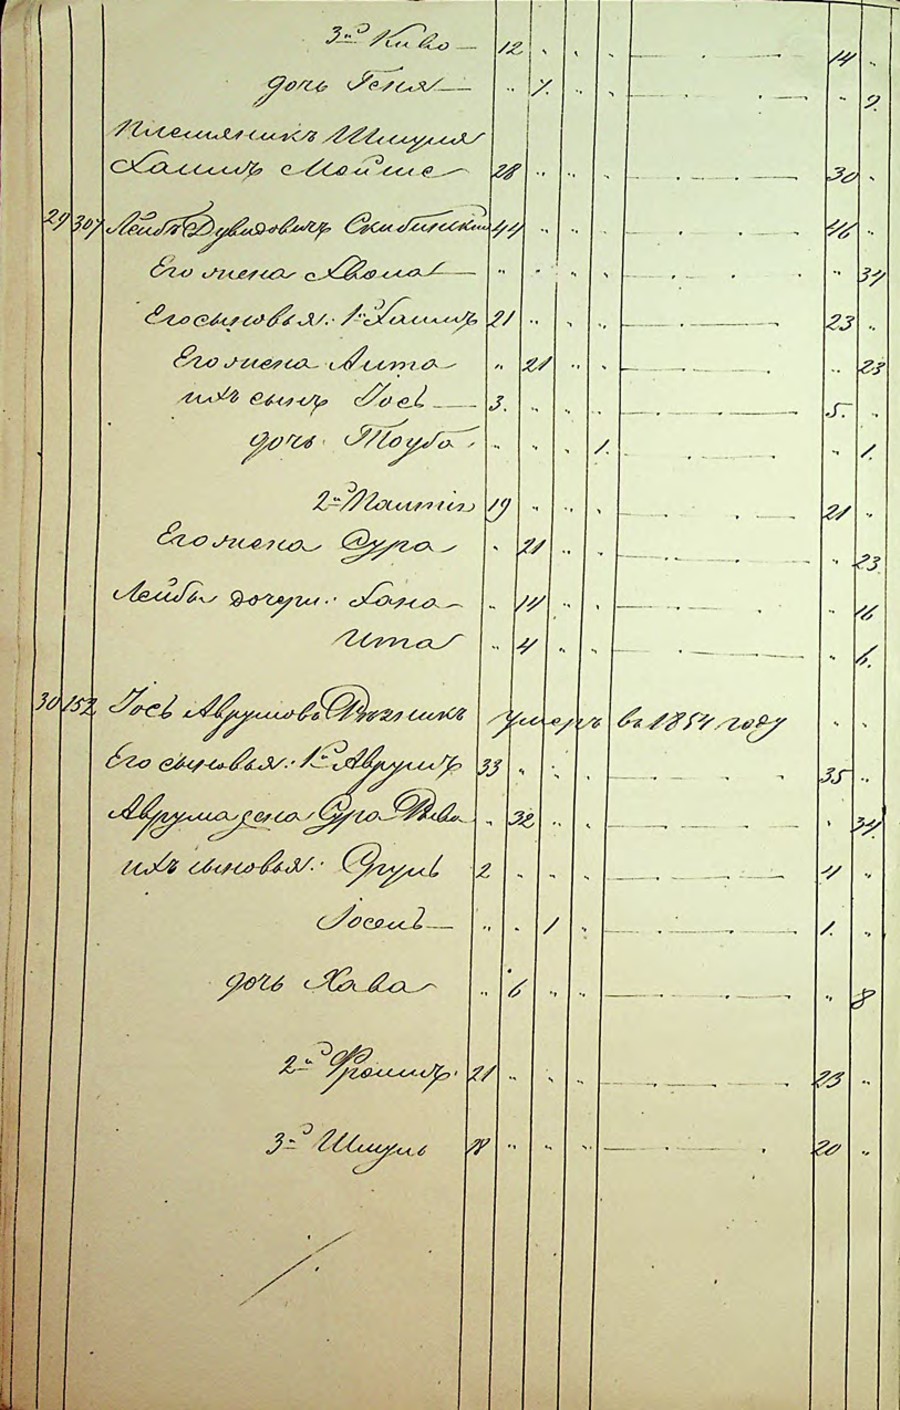 3й Киво — 12 " " " 14 "
дочь Геня — " 7. " " " 9.
Племяникъ Шмуля
Хаимъ Мойше 28 " " " 30 "
29 307 Лейбъ Дувидовичъ Скибинский 44 " " " 46 "
Его жена Хвола — " " " " " 34
Его сыновья: 1й Хаимъ 21 " " " 23 "
Его жена Аита " 21 " " " 23
ихъ сынъ Іось — 3. " " " 5. "
дочь Тоуба " " " 1. " 1.
2й 19 " " " 21 "
Его жена Сура " 21 " " " 23
Лейбы дочери: Хана " 14 " " " 16
Ита " 4 " " " 6.
30 152 Іось Аврумовъ Резникъ умеръ въ 1854 году " "
Его сыновья: 1й Аврумъ 33 " " " 35 "
Аврума жена Сура Рива " 32 " " " 34
ихъ сыновья: Сруль 2 " " " 4 "
Іосепъ — " " 1 " 1. "
дочь Хава " 6 " " " 8
2й Фроимъ 21 " " " 23 "
3й Шмуль 18 " " " 20 "